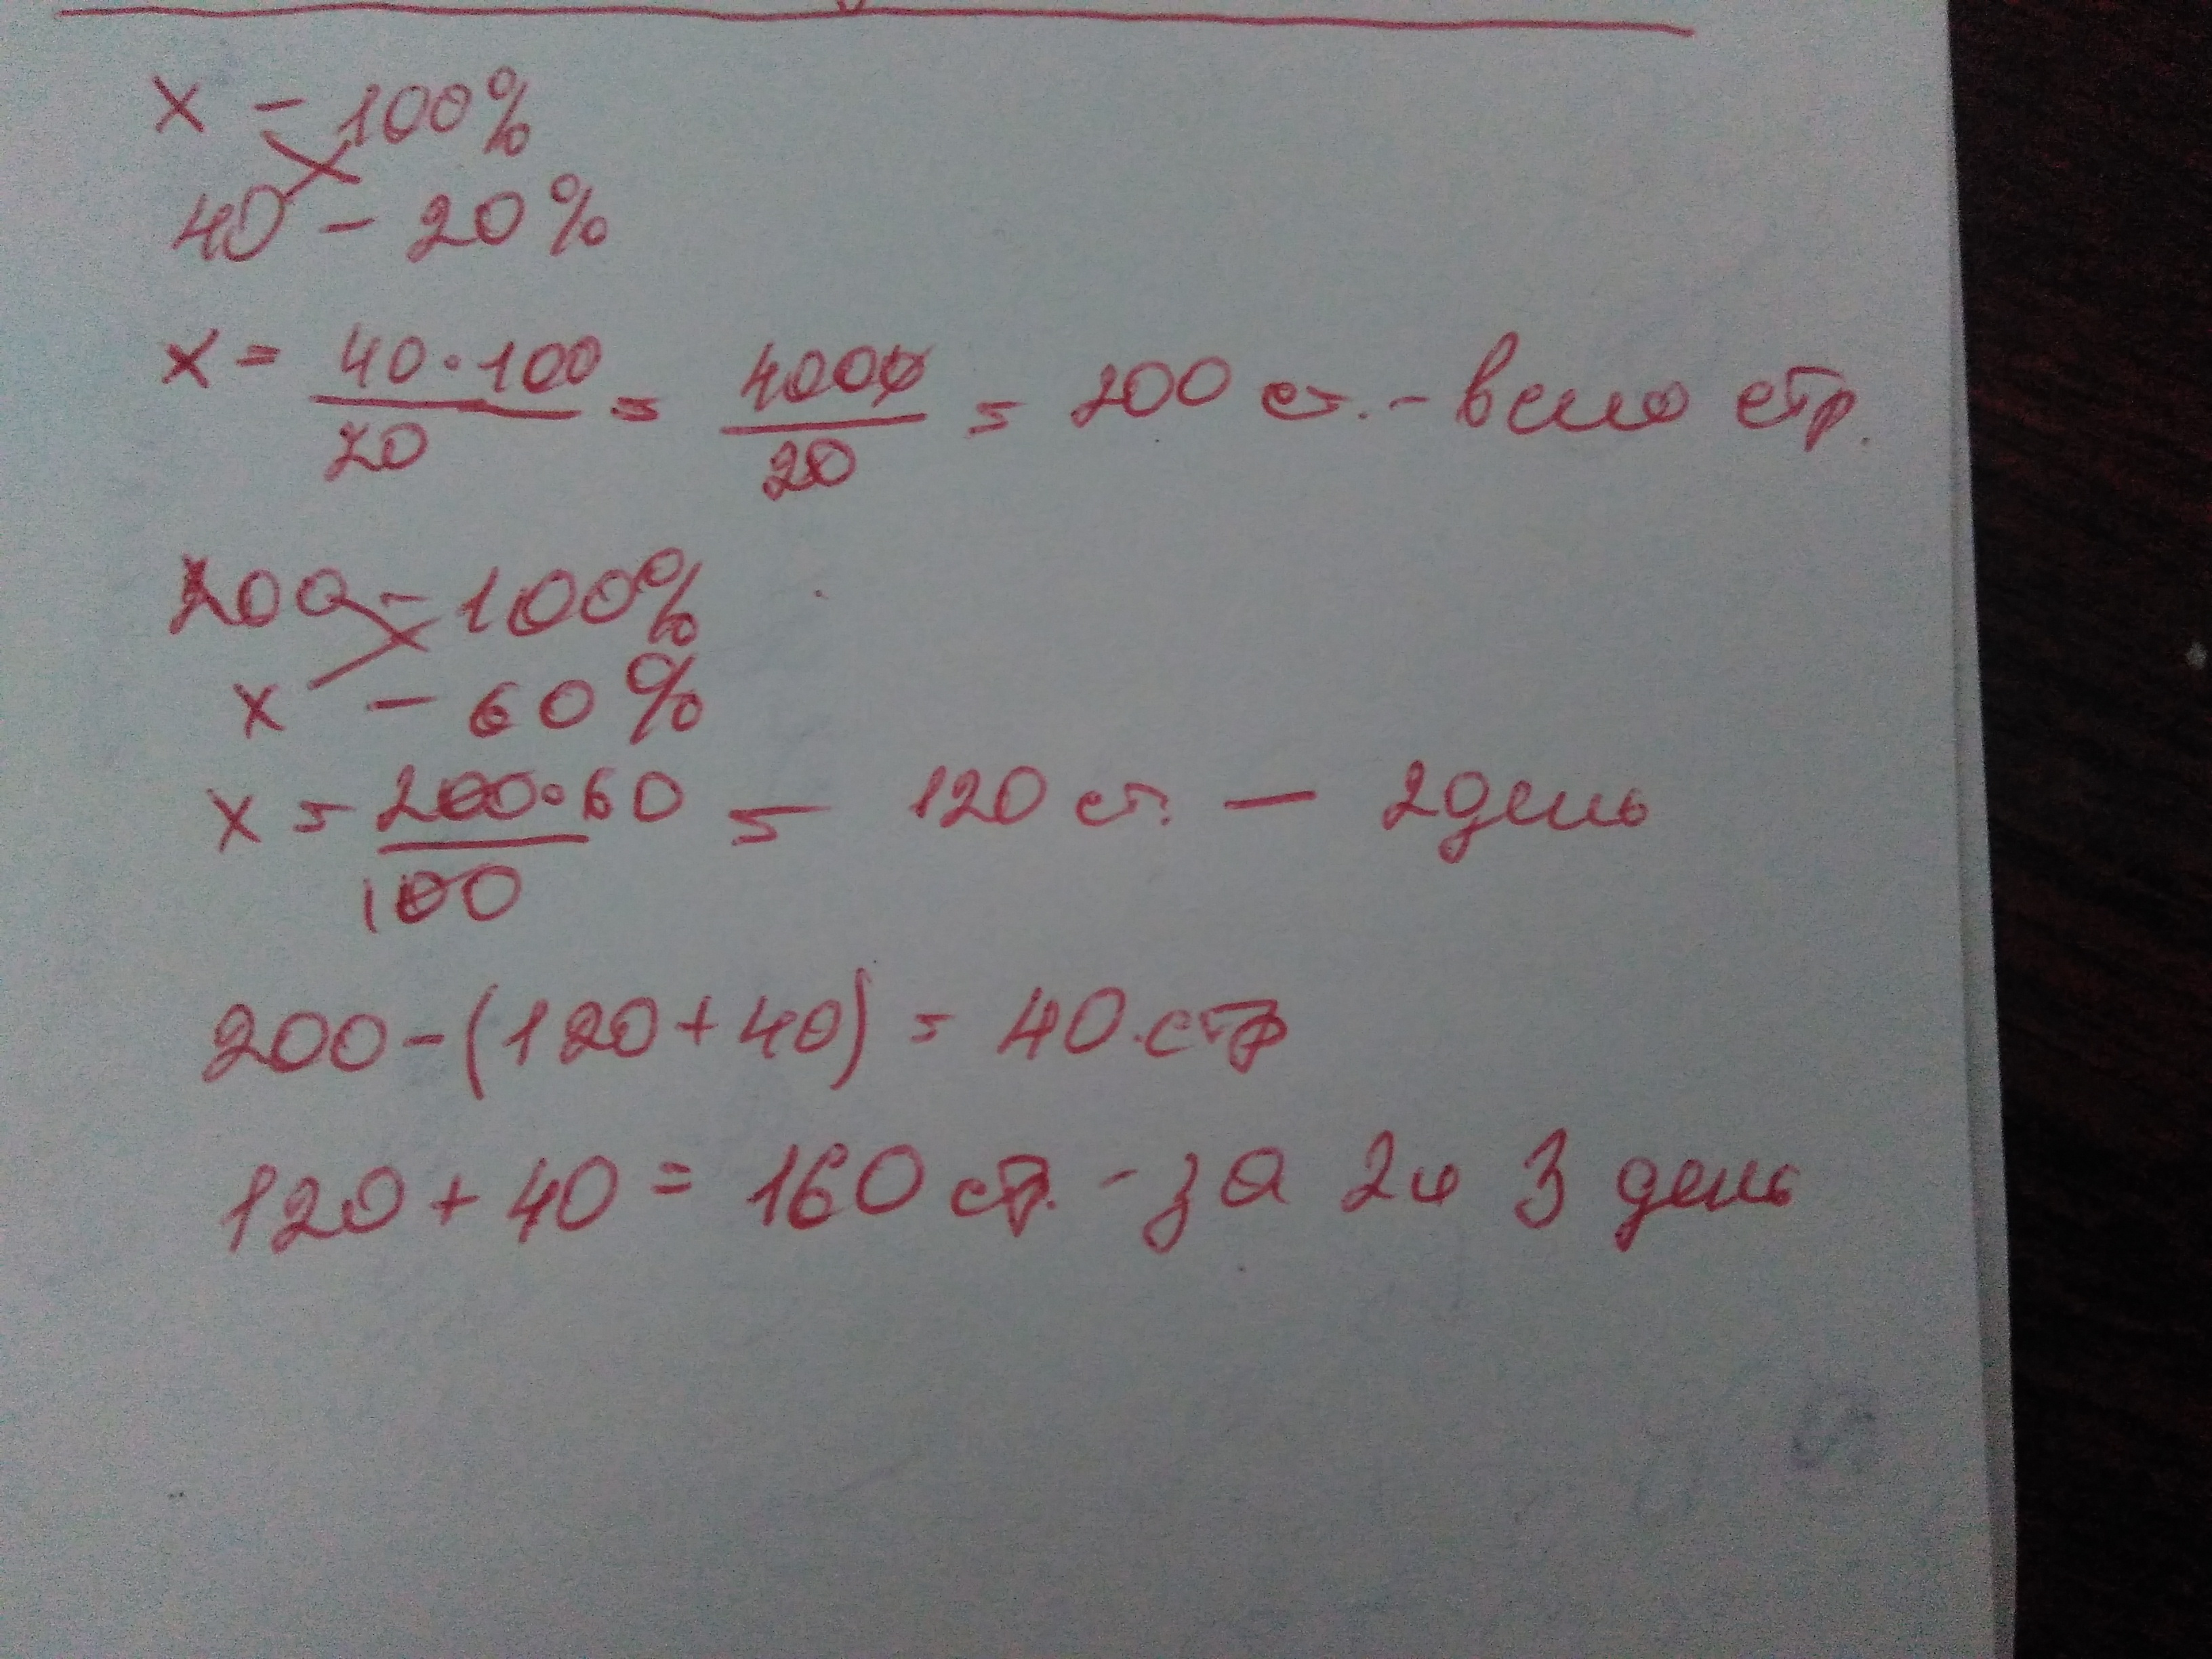 x - 100%
40 - 20%
x = 40·100/20 = 4000/20 = 200 ст. - всего стр.
200 - 100%
x - 60%
x = 200·60/100 = 120 ст. - 2 день
200-(120+40) = 40 стр
120+40 = 160 ст. - за 2 и 3 день